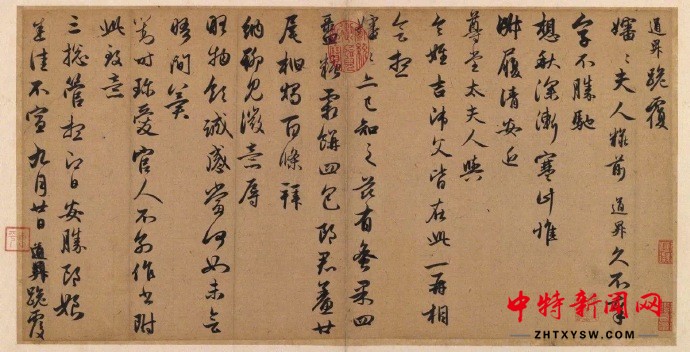 道昇跪覆
嬸〻夫人糚前道昇久不奉
字不勝馳
想秋深漸寒計惟
淑履清安近
尊堂太夫人與
令姪吉師父皆在此一再相
會想
嬸〻亦已知之茲有蜜果四
盝糖霜餅四包郎君鯗廿
尾柏燭百條拜
納聊見微意辱
物領誠感當何如未會
晤間冀
對時珍愛官人不別作書附
此致意
三總管想即日安勝郎娘
並佳不宣九月廿日道昇跪覆
中特新闻网
ZHTXYSW.COM